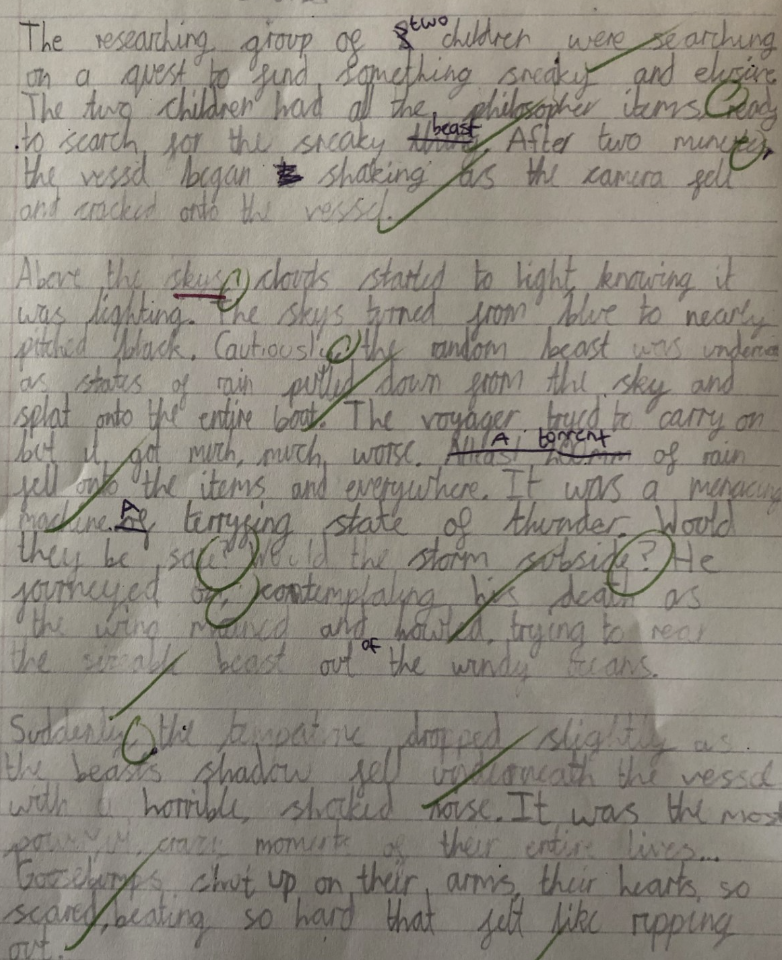 The researching group of two children were searching
on a quest to find something sneaky and elusive
The two children had all the philosopher items. Ready
to search for the sneaky beast. After two minutes,
the vessel began shaking as the camera fell
and cracked onto the vessel.
Above the skys, clouds started to light, knowing it
was lighting. The skys turned from blue to nearly
pitched black. Cautiously, the random beast was
as states of rain pulled down from the sky and
splat onto the entire boat. The voyager tryed to carry on
but it got much, much, worse. A torrent of rain
fell onto the items and everywhere. It was a menacing
machine. A terrysing state of thunder. Would
they be safe? Would the storm subside? He
journeyed on, contemplating his death as
the wind and howled, trying to
the sizeable beast out of the windy
Suddenly, the tempature dropped slightly as
the beasts shadow fell underneath the vessel
with a horrible, shocked noise. It was the most
powerful, crazy moments of their entire lives...
Goosebumps shut up on their arms, their hearts, so
scared, beating so hard that felt like ripping
out.